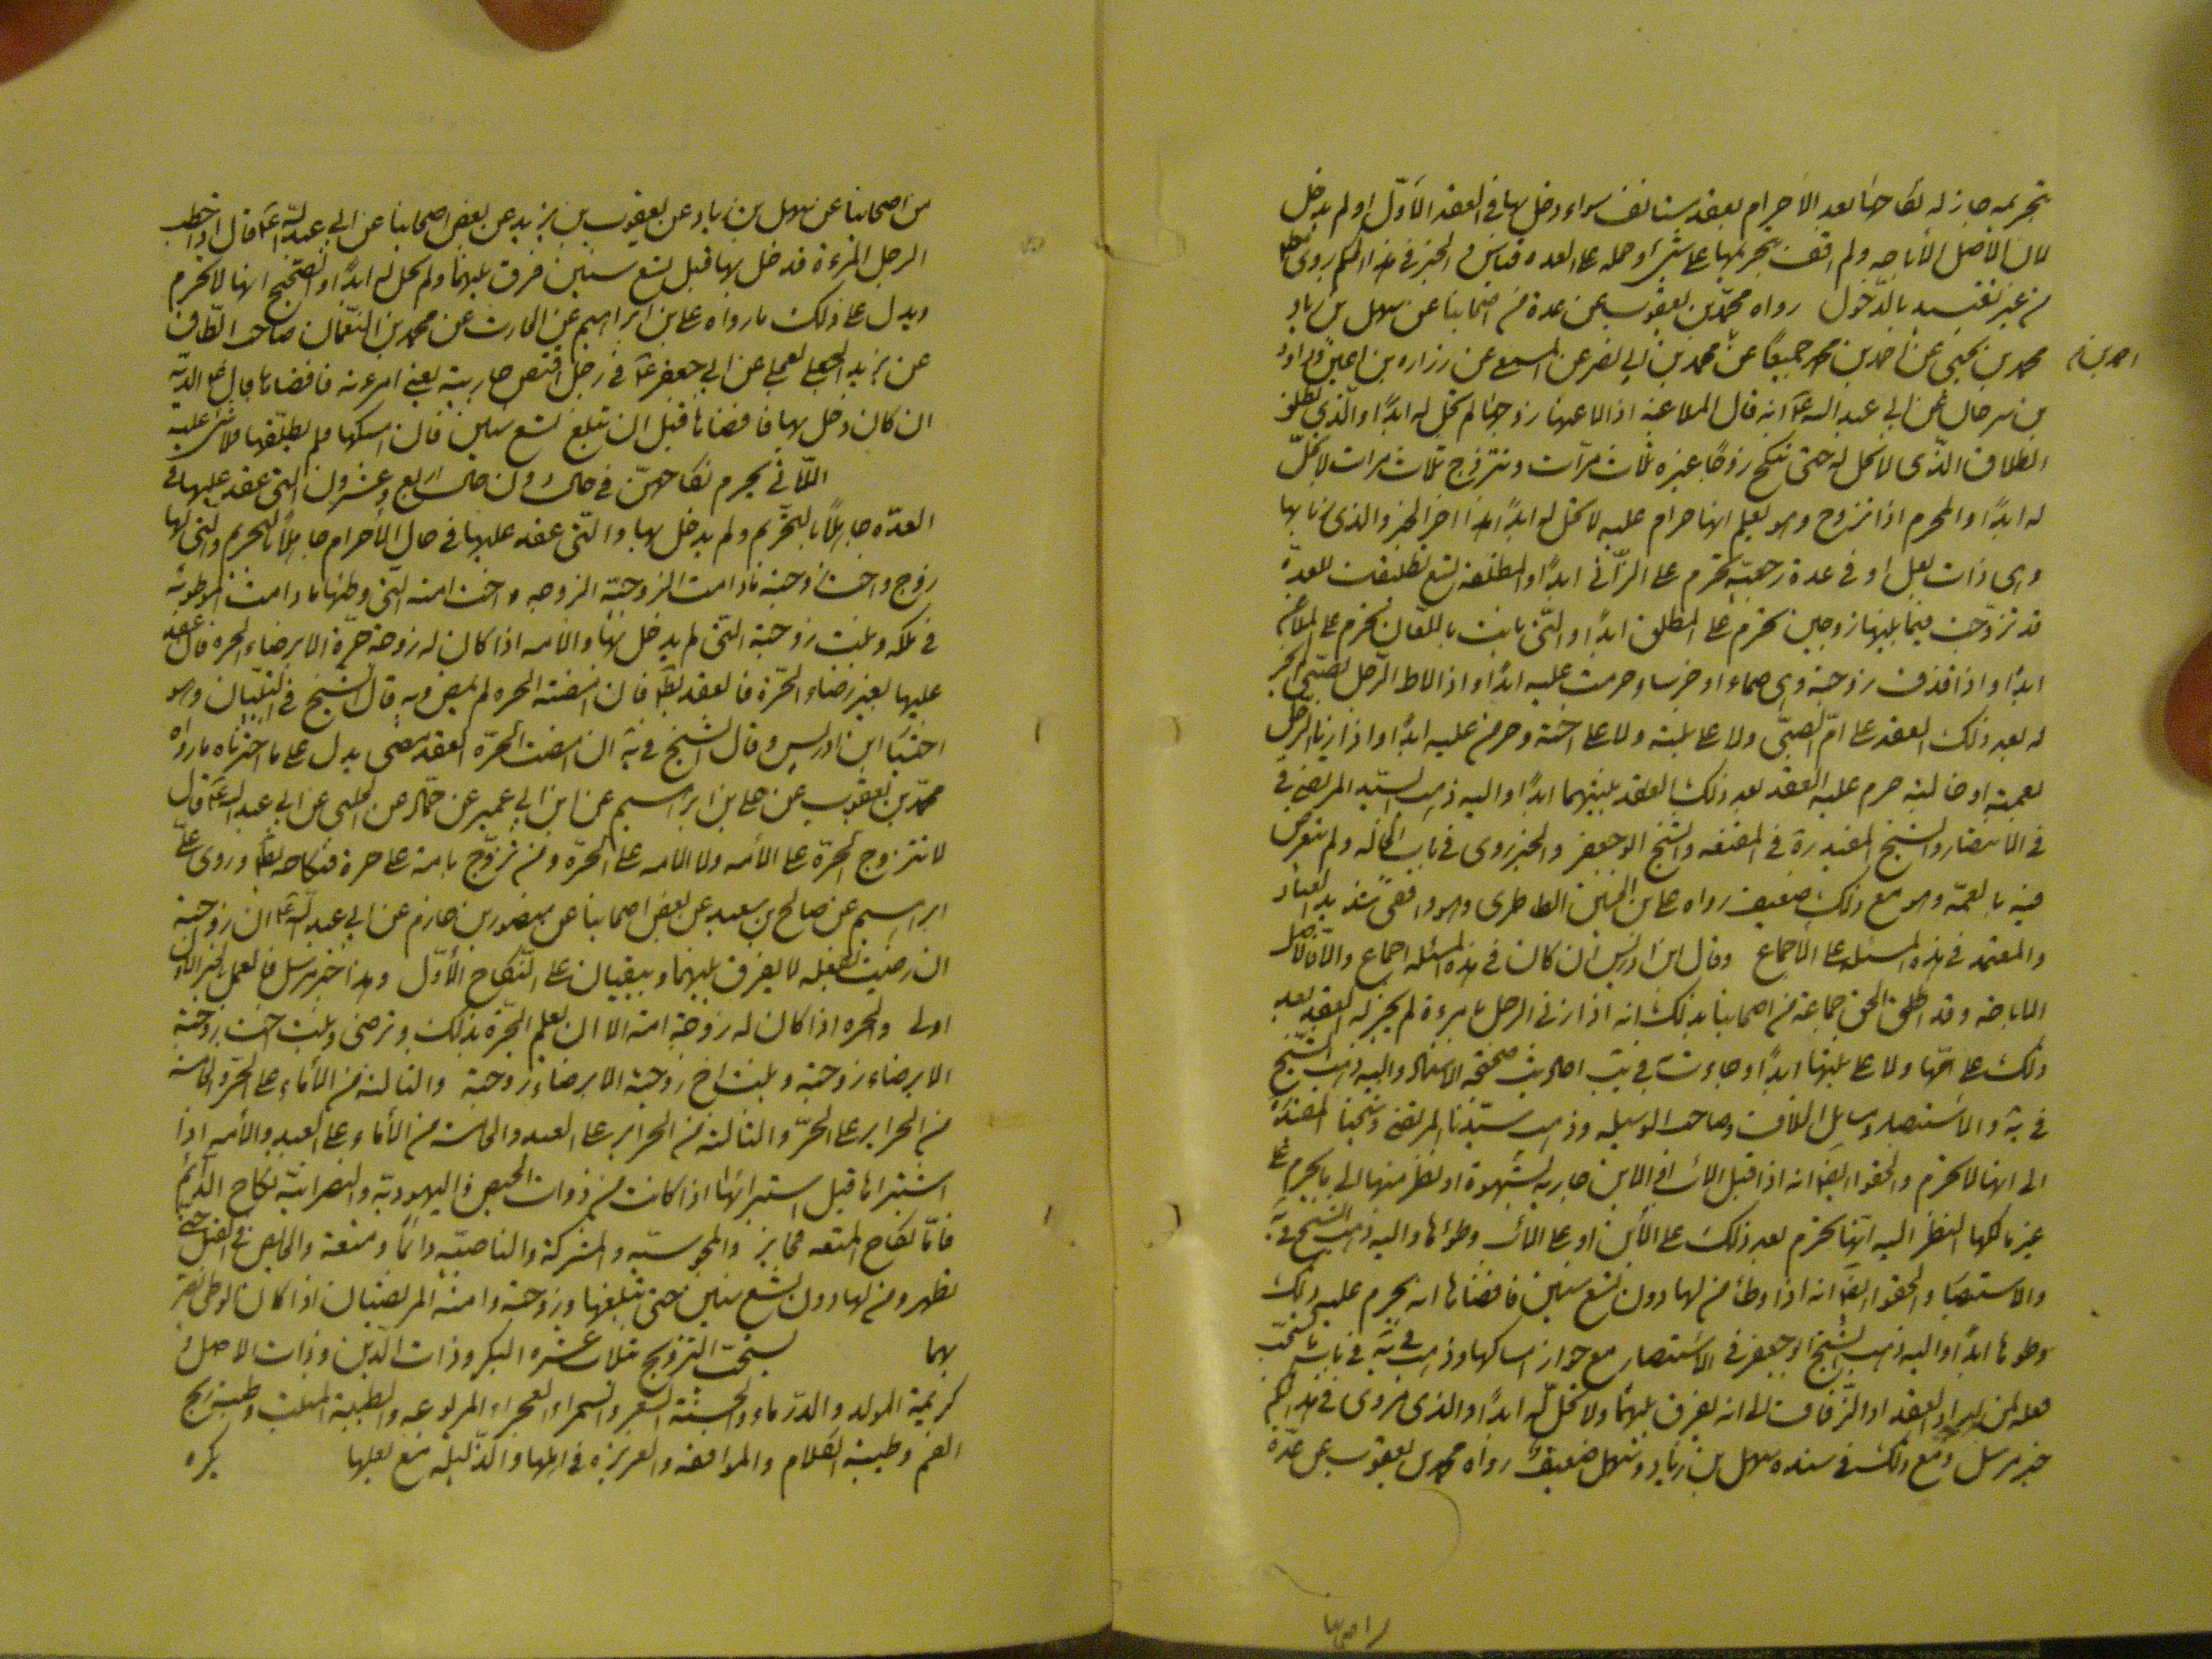 تحريمه جاز له نكاحها بعد الاحرام بعقد مستانف سواء دخل بها في العقد الاوّل او لم يدخل
لان الاصل الاباحه ولم اقف بتحريمها على شئ وحمله على العده قياس والخبر في هذا الحكم روى مطلقا
من غير تقييد بالدّخول رواه محمّد بن يعقوب عن عدة من اصحابنا عن سهل بن زياد
محمد بن يحيى عن احمد بن محمد جميعًا عن محمد بن ابي نصر عن المثنى عن زراره بن اعين وداود
احمد بن
بن سرحان عن ابي عبد الله ع انه قال الملاعنه اذا لاعنها زوجها لم تحل له ابدًا والّذي يطلق
الطلاق الّذي لا تحل له حتى تنكح زوجًا غيره ثلاث مرّات وتتزوج ثلاث مرات لا تحلّ
له ابدًا والمحرم اذا تزوج وهو يعلم انها حرام عليه لا تحل له ابدًا هذا اخر الخبر والذي زنا بها
وهي ذات بعل او في عدة رجعيّه تحرم على الزّاني ابدًا والمطلقه تسع تطليقات للعدة
قد تزوّجت فيما بينها زوجين تحرم على المطلق ابدًا والتّي بانت باللعان تحرم على الملاعن
ابدًا واذا قذف زوجته وهي صماء او خرساء حرمت عليه ابدًا واذا لاط الرّجل بصبّي لم يجز
له بعد ذلك العقد على امّ الصبّي ولا على بنته ولا على اخته وحرمن عليه ابدًا واذا زنا الرّجل
بعمته او خالته حرم عليه العقد بعد ذلك العقد بنتيهما ابدًا واليه ذهب السّيد المرتضى في
في الانتصار والشيخ المفيد ره في المقنعه والشيخ ابو جعفر والخبر روى في باب الخاله ولم يتعرض
فيه بالعمّه وهو مع ذلك ضعيف رواه على بن الحسن الطاطري وهو واقفى شديد العناد
والمعتمد في هذه المسئله على الاجماع وقال ابن ادريس ان كان في هذه المسئله اجماع والّا فالاصل
الاباحه وقد الحق جماعة من اصحابنا بذلك انه اذا زنى الرجل بامرءة لم يجز له العقد بعد
ذلك على امّها ولا على بنتها ابدًا وجاءت في يب احاديث صحيحه الاسناد واليه ذهب الشّيخ
في يه والاستبصار ومسايل الخلاف وصاحب الوسيله وذهب سيّدنا المرتضى وشيخنا المفيد ره
الى انها لا تحرم والحقوا ايضا انه اذا قبل الاب او الابن جاريه بشهوة او نظر منها الى ما يحرم على
غير مالكها النظر اليه انّها تحرم بعد ذلك على الابن او على الاب وطؤها واليه ذهب الشيخ في يه
والاستبصار والحقوا ايضًا انه اذا وطئ من لها دون تسع سنين فافضاها انه يحرم عليه ذلك
وطوها ابدًا واليه ذهب الشيخ ابو جعفر في الاستبصار مع جواز امساكها وذهب في يه في باب ما يستحب
فعله لمن اراد العقد او الزّفاف الى انه يفرق بينهما ولا تحلّ له ابدًا والذي روى في هذا الحكم
خبر مرسل ومع ذلك في سنده سهل بن زياد وسهل ضعيف رواه محمد بن يعقوب عن عدّة
من اصحابنا
من اصحابنا عن سهل بن زياد عن يعقوب بن يزيد عن بعض اصحابنا عن ابي عبد الله ع قال اذا خطب
الرجل المرءة فدخل بها قبل تسع سنين فرق بينهما ولم تحل له ابدًا والصّحيح انها لا تحرم
ويدل على ذلك ما رواه على بن ابراهيم عن الحارث عن محمد بن النعّمان صاحب الطّاق
عن بريد العجلي عن ابي جعفر ع في رجل افتض جارية يعني امرءته فافضاها قال عليه الديّه
ان كان دخل بها فافضاها قبل ان تبلغ تسع سنين فان امسكها ولم يطلّقها فلا شئ عليه
اللّاتي يحرم نكاحهنّ في حال دون حال اربع وعشرون التي عقد عليها في
العدّه جاهلًا بالتحريم ولم يدخل بها والتّي عقد عليها في حال الاحرام جاهلًا بالتحريم والّتي لها
زوج واخت زوجته ما دامت الزوجيّة الزوجه واخت امته التي وطئها ما دامت الموطوئه
في ملكه وبنت زوجته التّي لم يدخل بها والامه اذا كان له زوجة حرّة الا برضاء الحره فان عقد
عليها بغير رضاء الحّرة فالعقد بطل فان امضته الحره لم يمض وبه قال الشيخ في التبيان وهو
اختيار ابن ادريس وقال الشيخ في يه ان امضت الحرّه العقد مضى يدل على ما اخترناه ما رواه
محمّد بن يعقوب عن على بن ابراهيم عن ابن ابي عمير عن حمّاد عن الحلبي عن ابي عبد الله ع قال
لا تتزوج الحرّة على الأمه ولا الامه على الحرّه ومن تزوّج بامة على حرة فنكاحه بطل وروى على
ابراهيم عن صالح بن سعيد عن بعض اصحابنا عن منصور بن حازم عن ابي عبد الله ع ان زوجته
ان رضيت بفعله لا يفرق بينهما ويبقيان على النّكاح الأوّل وهذا خبر مرسل فالعمل بالخبر الاول
اولى والحره اذا كان له زوجة امة الا ان تعلم الحّرة بذلك وترضى وبنت اخت زوجته
الا برضاء زوجته وبنت اخ زوجته الا برضاء زوجته والثالثة من الأماء على الحرّ والخامسة
من الحراير على الحرّ والثالثة من الحراير على العبد والخامسة من الأماء على العبد والأمه اذا
اشتراها قبل استبرائها اذا كانت من ذوات الحيض واليهوديّه والنصرانيّة نكاح الدّائم
فامّا نكاح المتعه فجايز والمجوسيّه والمشركة والناصبيّه دائمًا ومتعة والحايض في القبل حتّى
تطهر ومن لها دون تسع سنين حتى تبلغها وزوجته وامته المريضتان اذا كان الوطى يضر
بهما يستحبّ التزويج بثلاث عشره البكر وذات الّدين وذات الاصل و
كريمة المولد والدّرماء والحسنة الشعر والسمراء العجزاء المربوعه والطيبة الليت وطيبة ريح
الفم وطيبة الكلام والموافقه والعزيزه في اهلها والذّليله مع بعلها يكره